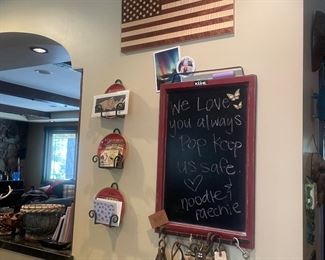 We Love
you always
Pop Keep
us safe.
noodle &
raechie